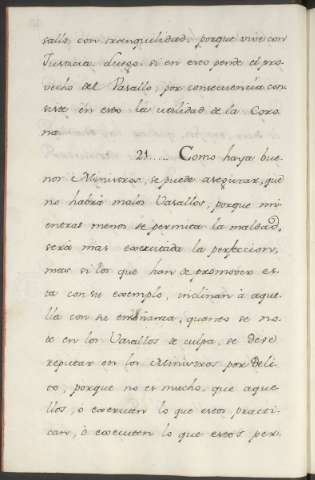 sallo con tranquilidad, porque vive con
Justicia. Luego si en esto pende el pro-
vecho del Vasallo, por consecuencia con-
siste en esto la utilidad de la Coro-
na.
21..... Como haya bue-
nos Ministros, se puede asegurar, que
no habrá malos Vasallos, porque mi-
entras menos se permuta la maldad,
será mas executada la perfeccion,
mas si los que han de promover es-
ta con su exemplo, inclinan à aque-
lla con su enseñanza, quanto se no-
te en los Vasallos de culpa, se debe
reputar en los Ministros por Deli-
to, porque no es mucho, que aque-
llos, ò executen lo que estos practi-
can, ò executen lo que estos per-